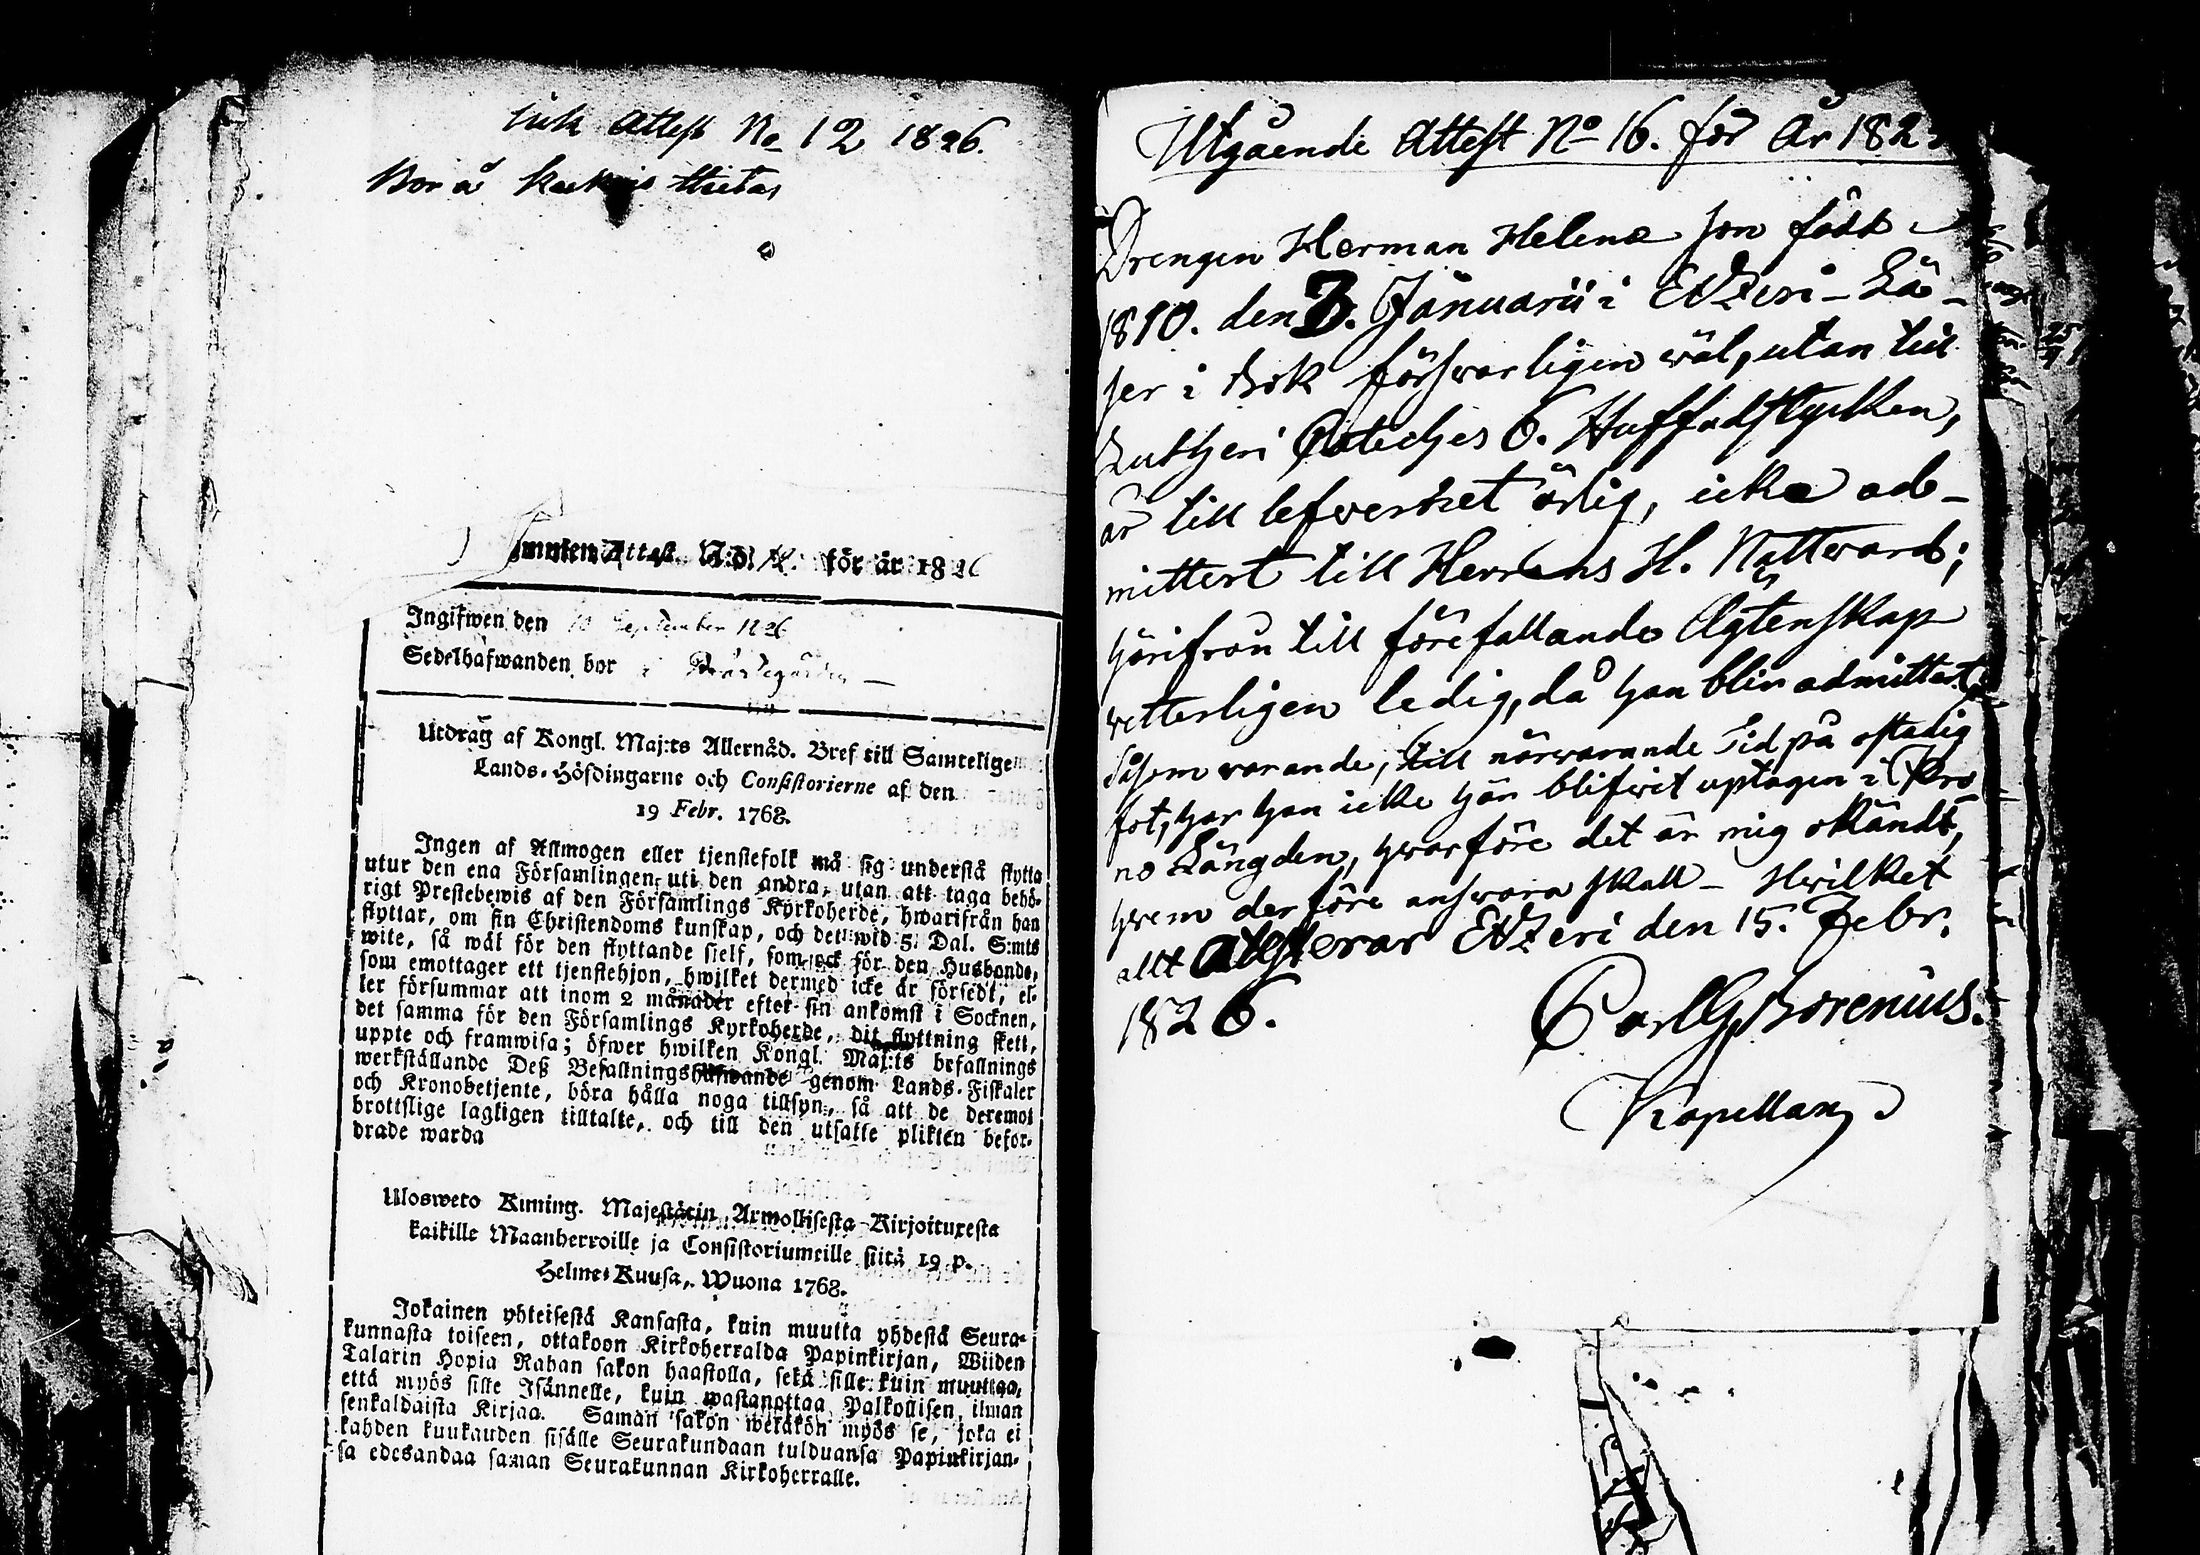 Attest No 12 1826.
Bor å
Attest N:o 12. för år 1826
Ingifwen den 10 September 1826
Sedelhafwanden bor i Prästegården
Utdrag af Kongl. Maj:ts Allernåd. Bref till Samtelige
Lands-Höfdingarne och Consistorierne af den
19 Febr. 1768.
Ingen af Allmogen eller tjenstefolk må sig understå flytta
utur den ena Församlingen uti den andra, utan att taga behö-
rigt Prestebewis af den Församlings Kyrkoherde, hwarifrån han
flyttar, om sin Christendoms kunskap, och det wid 5 Dal. S:mts
wite, så wäl för den flyttande sielf, som ock för den Husbonde,
som emottager ett tjenstehjon, hwilket dermed icke är försedt, el-
ler försummar att inom 2 månader efter sin ankomst i Socknen,
det samma för den Församlings Kyrkoherde, dit flyttning skett,
uppte och framwisa; öfwer hwilken Kongl. Maj:ts befallnings
werkställande Deß Befallningshafwande genom Lands-Fiskaler
och Kronobetjente, böra hålla noga tillsyn, så att de deremot
brottslige lagligen tilltalte, och till den utsatte plikten befor-
drade warda
Ulosweto Kuning. Majestätin Armollisesta Kirjoituxesta
kaikille Maanherroille ja Consistoriumeille siitä 19 p.
Helme-Kuusa, Wuona 1768.
Jokainen yhteisestä Kansasta, kuin muutta yhdestä Seura-
kunnasta toiseen, ottakoon Kirkoherralda Papinkirjan, Wiiden
Talarin Hopia Rahan sakon haastolla, sekä sille kuin muuttaa,
että myös sille Isännelle, kuin wastanottaa Palkollisen ilman
senkaldaista Kirjaa. Saman sakon wetäkön myös se, joka ei
kahden kuukauden sisälle Seurakundaan tulduansa Papinkirjan-
sa edesandaa saman Seurakunnan Kirkoherralle.
Utgående Attest No 16. för År 182
Drengen Herman Helene son född
1810. den 3. Januarii i Etzeri – Lä-
ser i Bok försvarligen wäl, utan till
Lutheri Cateches 6. Huffudstycken,
är till lefwernet ärlig, icke ad-
mittert till Herrens H. Nattward;
härifrån till förefallande Ägtenskap
wetterligen ledig, då han blir admittert
Såsom warande, till närwarande Tid på ostadig
fot, har han icke här blifwit uptagen i Kro-
no Längden, hwarföre det är mig okändt,
hwem derföre answara skall – Hwilket
allt attesterar Etzeri den 15. Febr.
1826.
Carl G. Borenius.
Kapellan